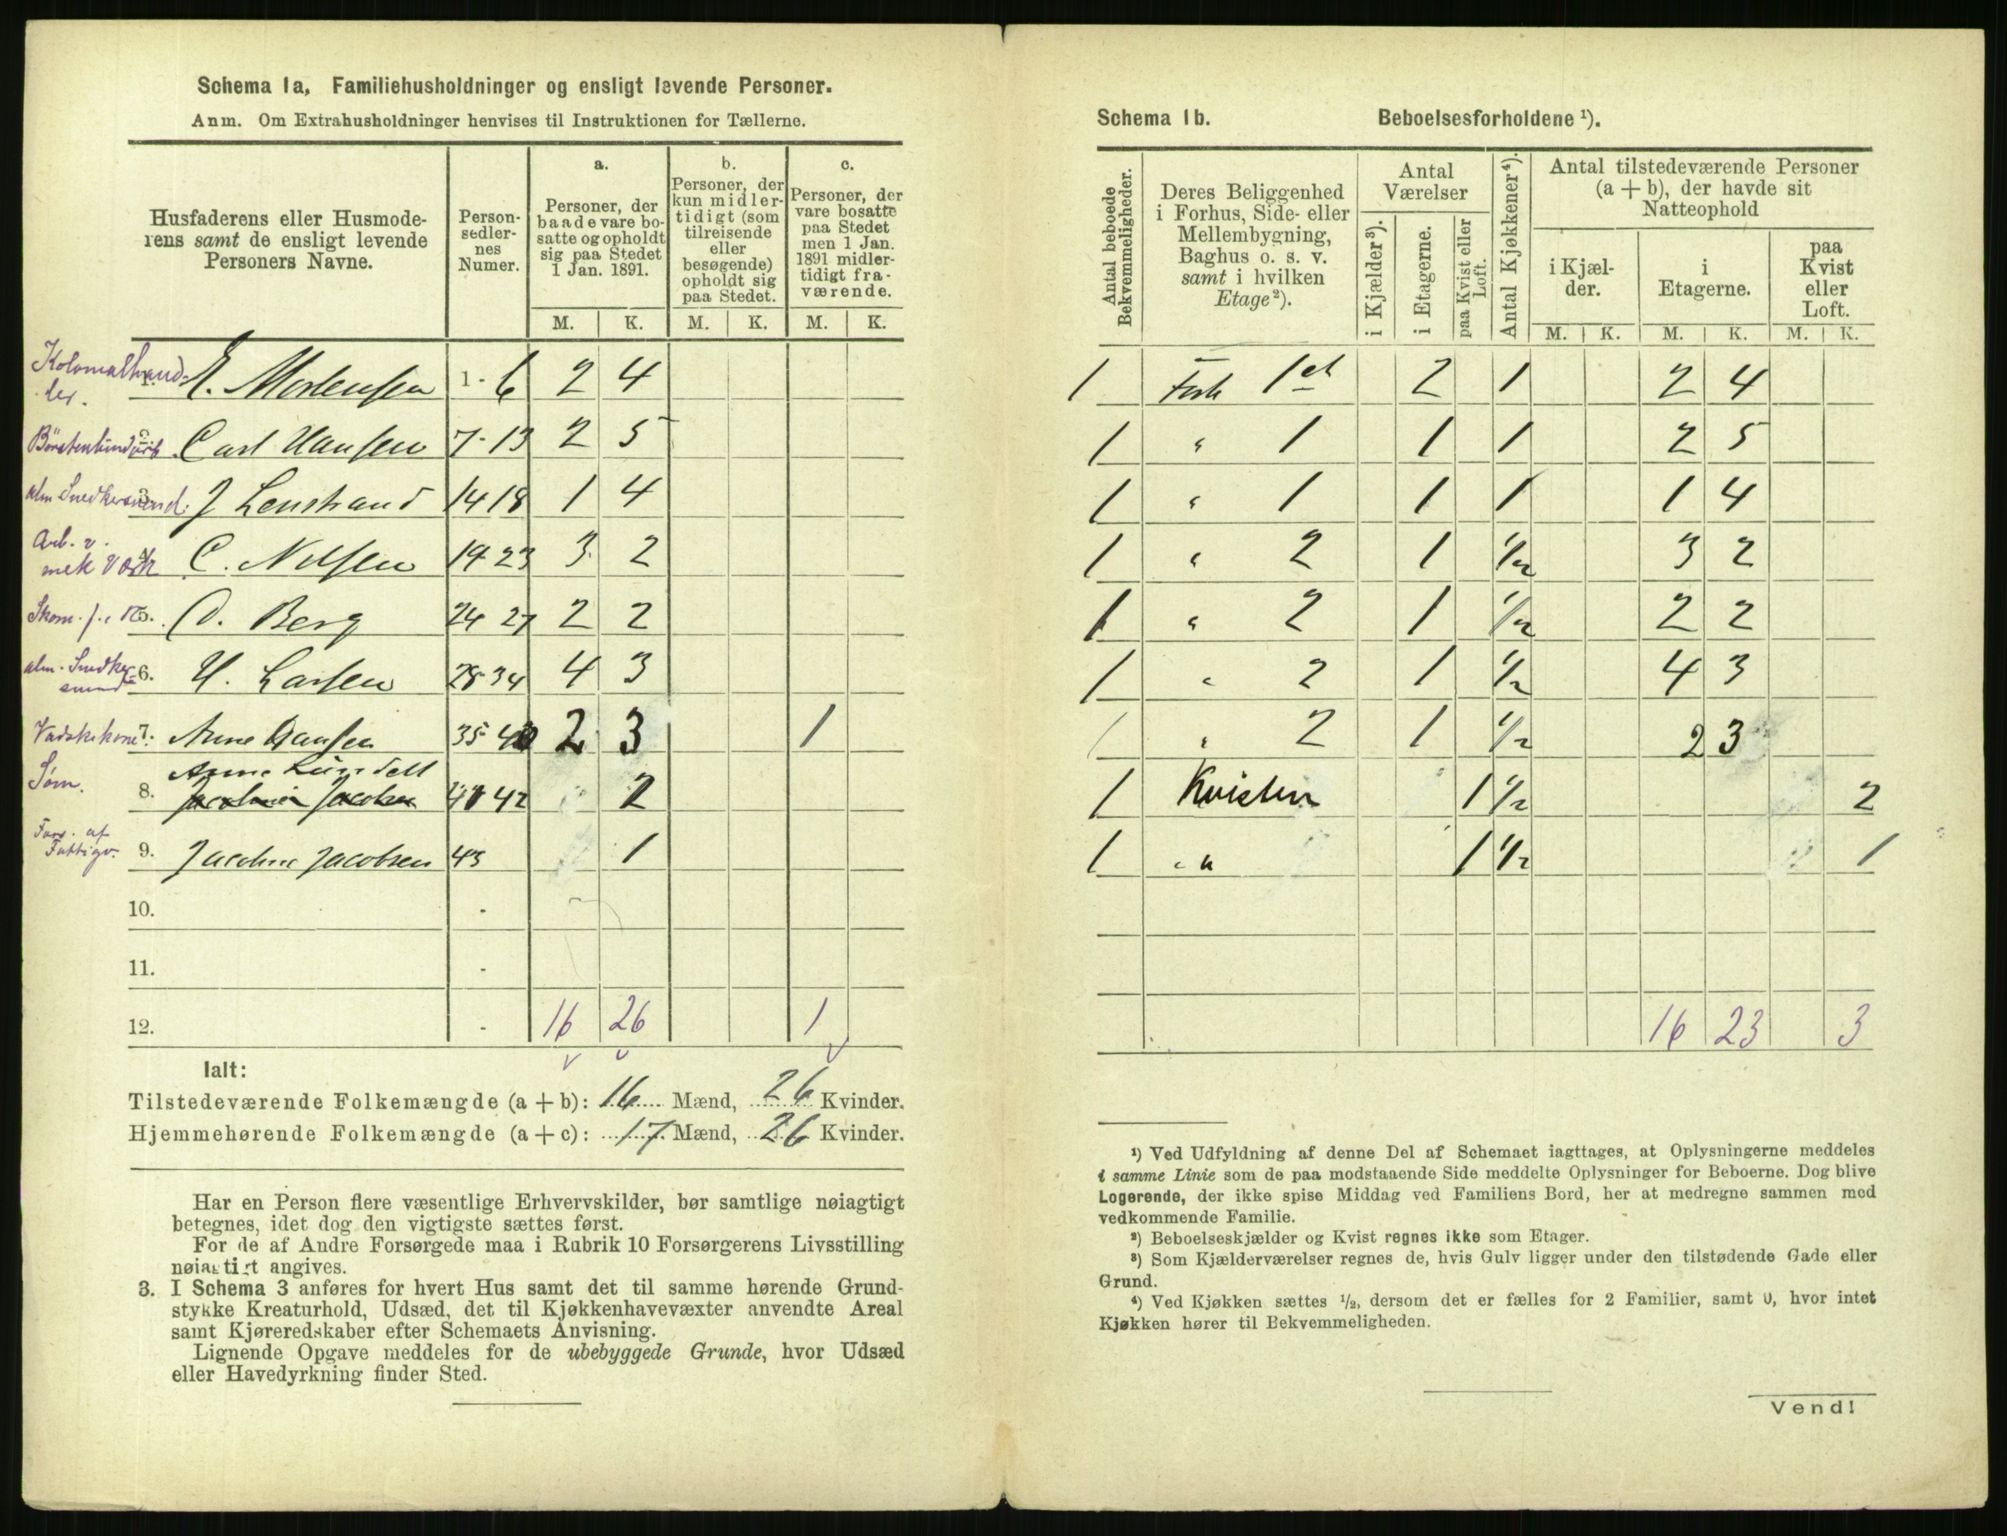 Schema 1a, Familiehusholdninger og ensligt levende Personer.
Anm. Om Extrahusholdninger henvises til Instruktionen for Tællerne.
Husfaderens eller Husmoderens samt de ensligt levende Personers Navne.
Personsedlernes Numer.
a. Personer, der baade vare bosatte og opholdt sig paa Stedet 1 Jan. 1891.
b. Personer, der kun midlertidigt (som tilreisende eller besøgende) opholdt sig paa Stedet.
c. Personer, der vare bosatte paa Stedet men 1 Jan. 1891 midlertidigt fraværende.
M. K. M. K. M. K.
Kolonialhandler. 1. E. Mortensen 1 - 6 2 4
2. Carl Hansen 7 - 13 2 5
alm Snedkersvend. 3. J Lenstrand 14 18 1 4
Arb. v. mek Værk 4. C. Nilsen 19 - 23 3 2
5. O. Berg 24 27 2 2
alm. Snedkersvend 6. H. Larsen 28 34 4 3
Vadskekone 7. Anne Hansen 35 40 2 3 1
Søm. 8. Anne Lundell 41 42 2
Fors. af Fattigv. 9. Jacobine Jacobsen 43 1
10. -
11. -
12. - 16 26 1
Ialt:
Tilstedeværende Folkemængde (a + b): 16 Mænd, 26 Kvinder.
Hjemmehørende Folkemængde (a + c): 17 Mænd, 26 Kvinder.
Har en Person flere væsentlige Erhvervskilder, bør samtlige nøiagtigt
betegnes, idet dog den vigtigste sættes først.
For de af Andre Forsørgede maa i Rubrik 10 Forsørgerens Livsstilling
nøiagtigt angives.
3. I Schema 3 anføres for hvert Hus samt det til samme hørende Grund-
stykke Kreaturhold, Udsæd, det til Kjøkkenhavevæxter anvendte Areal
samt Kjøreredskaber efter Schemaets Anvisning.
Lignende Opgave meddeles for de ubebyggede Grunde, hvor Udsæd
eller Havedyrkning finder Sted.
Schema 1b. Beboelsesforholdene ¹).
Antal beboede Bekvemmeligheder.
Deres Beliggenhed i Forhus, Side- eller Mellembygning, Baghus o. s. v. samt i hvilken Etage ²).
Antal Værelser
i Kjælder ³).
i Etagerne.
paa Kvist eller Loft.
Antal Kjøkkener ⁴).
Antal tilstedeværende Personer (a + b), der havde sit Natteophold
i Kjælder.
i Etagerne.
paa Kvist eller Loft.
M. K. M. K. M. K.
1 Forh 1et 2 1 2 4
1 " 1 1 1 2 5
1 " 1 1 1 1 4
1 " 2 1 1/2 3 2
1 " 2 1 1/2 2 2
1 " 2 1 1/2 4 3
1 " 2 1 1/2 2 3
1 Kvisten 1 1/2 2
1 " 1 1/2 1
16 23 3
¹) Ved Udfyldning af denne Del af Schemaet iagttages, at Oplysningerne meddeles
i samme Linie som de paa modstaaende Side meddelte Oplysninger for Beboerne. Dog blive
Logerende, der ikke spise Middag ved Familiens Bord, her at medregne sammen med
vedkommende Familie.
²) Beboelseskjælder og Kvist regnes ikke som Etager.
³) Som Kjælderværelser regnes de, hvis Gulv ligger under den tilstødende Gade eller
Grund.
⁴) Ved Kjøkken sættes ½, dersom det er fælles for 2 Familier, samt 0, hvor intet
Kjøkken hører til Bekvemmeligheden.
Vend!